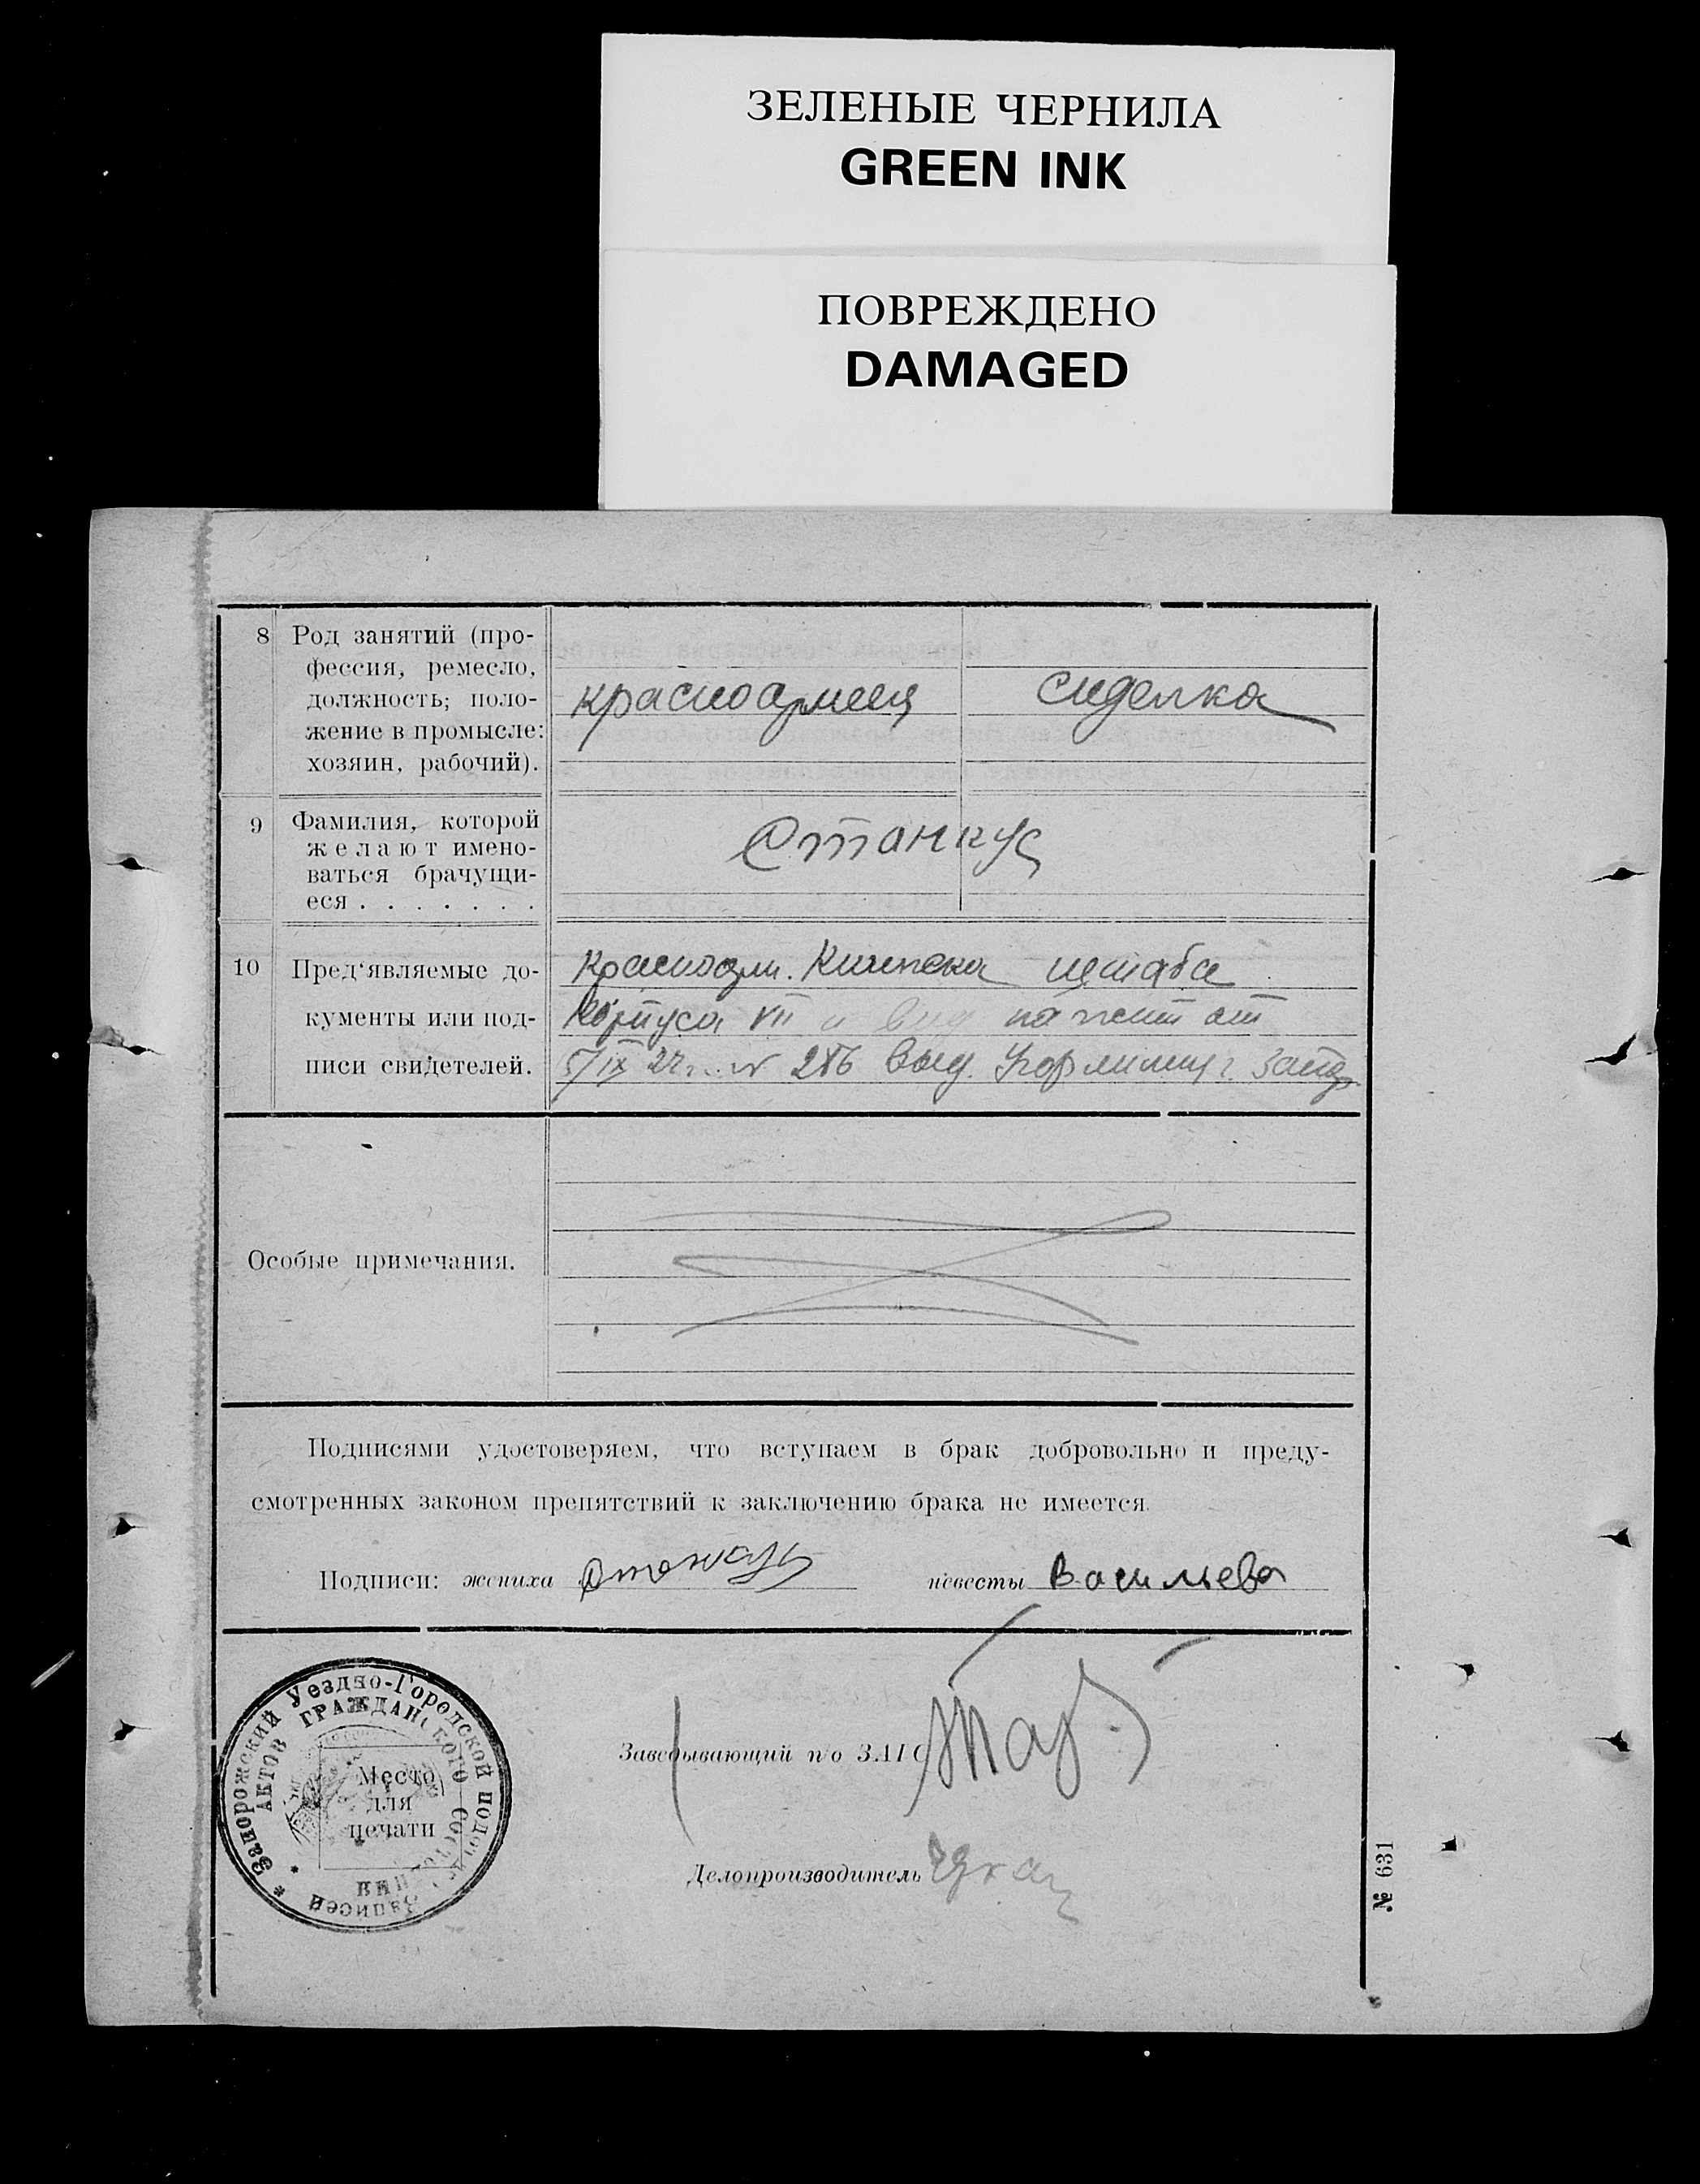 ЗЕЛЕНЫЕ ЧЕРНИЛА
GREEN INK
ПОВРЕЖДЕНО
DAMAGED
8 Род занятий (про-
фессия, ремесло,
должность; поло-
жение в промысле:
хозяин, рабочий).
красноармеец
сиделка
9 Фамилия, которой
желают имено-
ваться брачущи-
еся . . . . . . .
Станкус
10 Пред'являемые до-
кументы или под-
писи свидетелей.
Красноарм. Книжка штаба
Корпуса VII и вид на жит от
5/IX 22 г. № 286 выд.
Особые примечания.
Подписями удостоверяем, что вступаем в брак добровольно и преду-
смотренных законом препятствий к заключению брака не имеется.
Подписи: жениха Станкус невесты Васильева
Запорожский Уездно-Городской подотдел
Записей АКТОВ ГРАЖДАНСКОГО СОСТОЯНИЯ
Место
для
печати
Заведывающий п/о ЗАГС
Делопроизводитель
№ 631